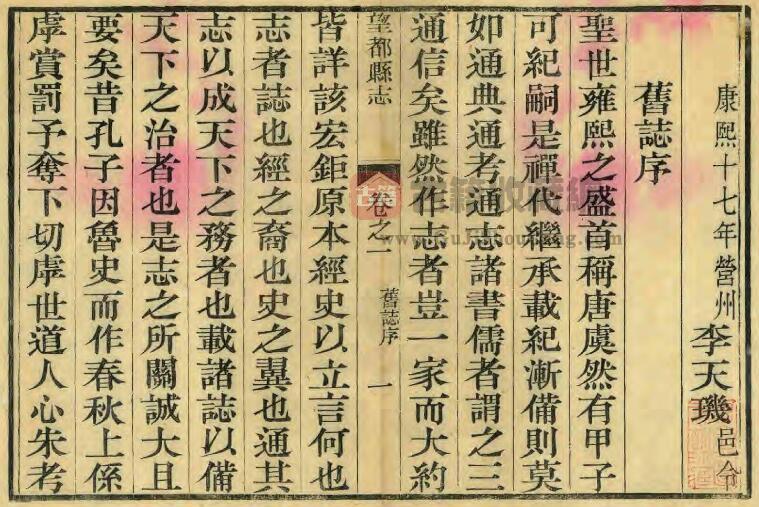 舊誌序
康熙十七年營州李天璣邑令
聖世雍熙之盛首稱唐虞然有甲子
可紀嗣是禪代繼承載紀漸備則莫
如通典通考通志諸書儒者謂之三
通信矣雖然作志者豈一家而大約
望都縣志
卷之一
舊誌序
一
皆詳該宏鉅原本經史以立言何也
志者誌也經之裔也史之翼也通其
志以成天下之務者也載諸誌以備
天下之治者也是志之所關誠大且
要矣昔孔子因魯史而作春秋上係
虖賞罰予奪下切虖世道人心朱考